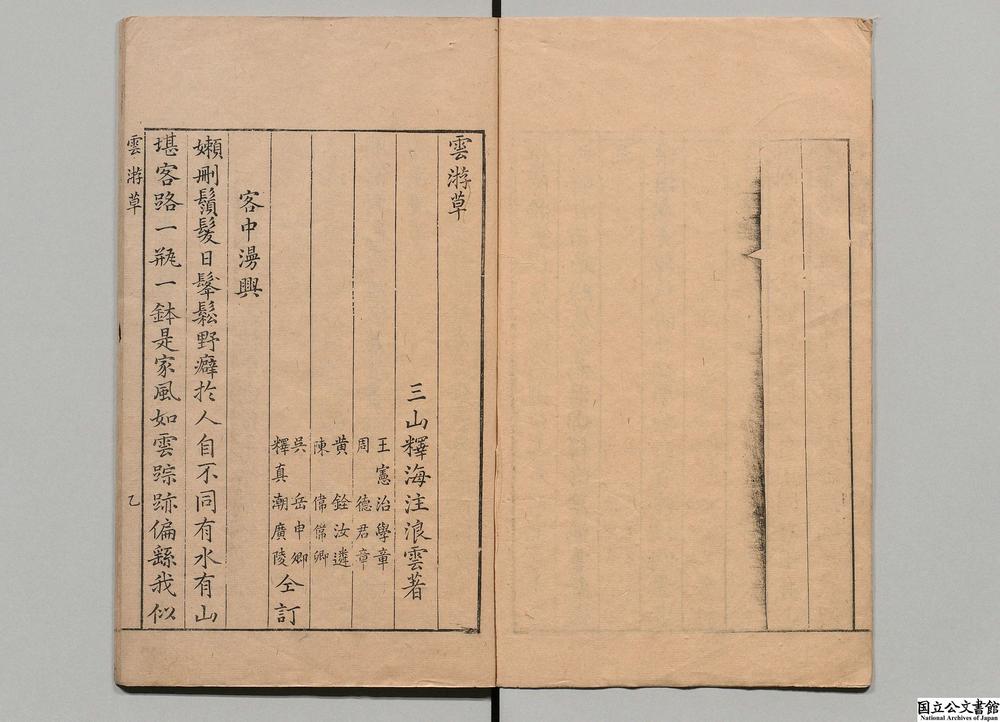 雲游草
三山釋海注浪雲著
王憲治學章
周德君章
黄銓汝遴
陳偉傑卿
吳岳申卿
釋真潮廣陵
仝訂
客中漫興
嬾刪鬚髮日鬔鬆野癖於人自不同有水有山
堪客路一瓶一鉢是家風如雲踪跡偏繇我似
雲游草
乙
国立公文書館
National Archives of Japan